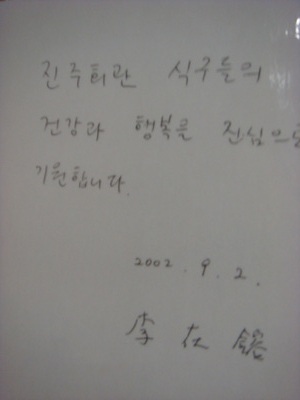 진주회관 식구들의
건강과 행복을 진심으로
기원합니다.
2002. 9. 2.
李在